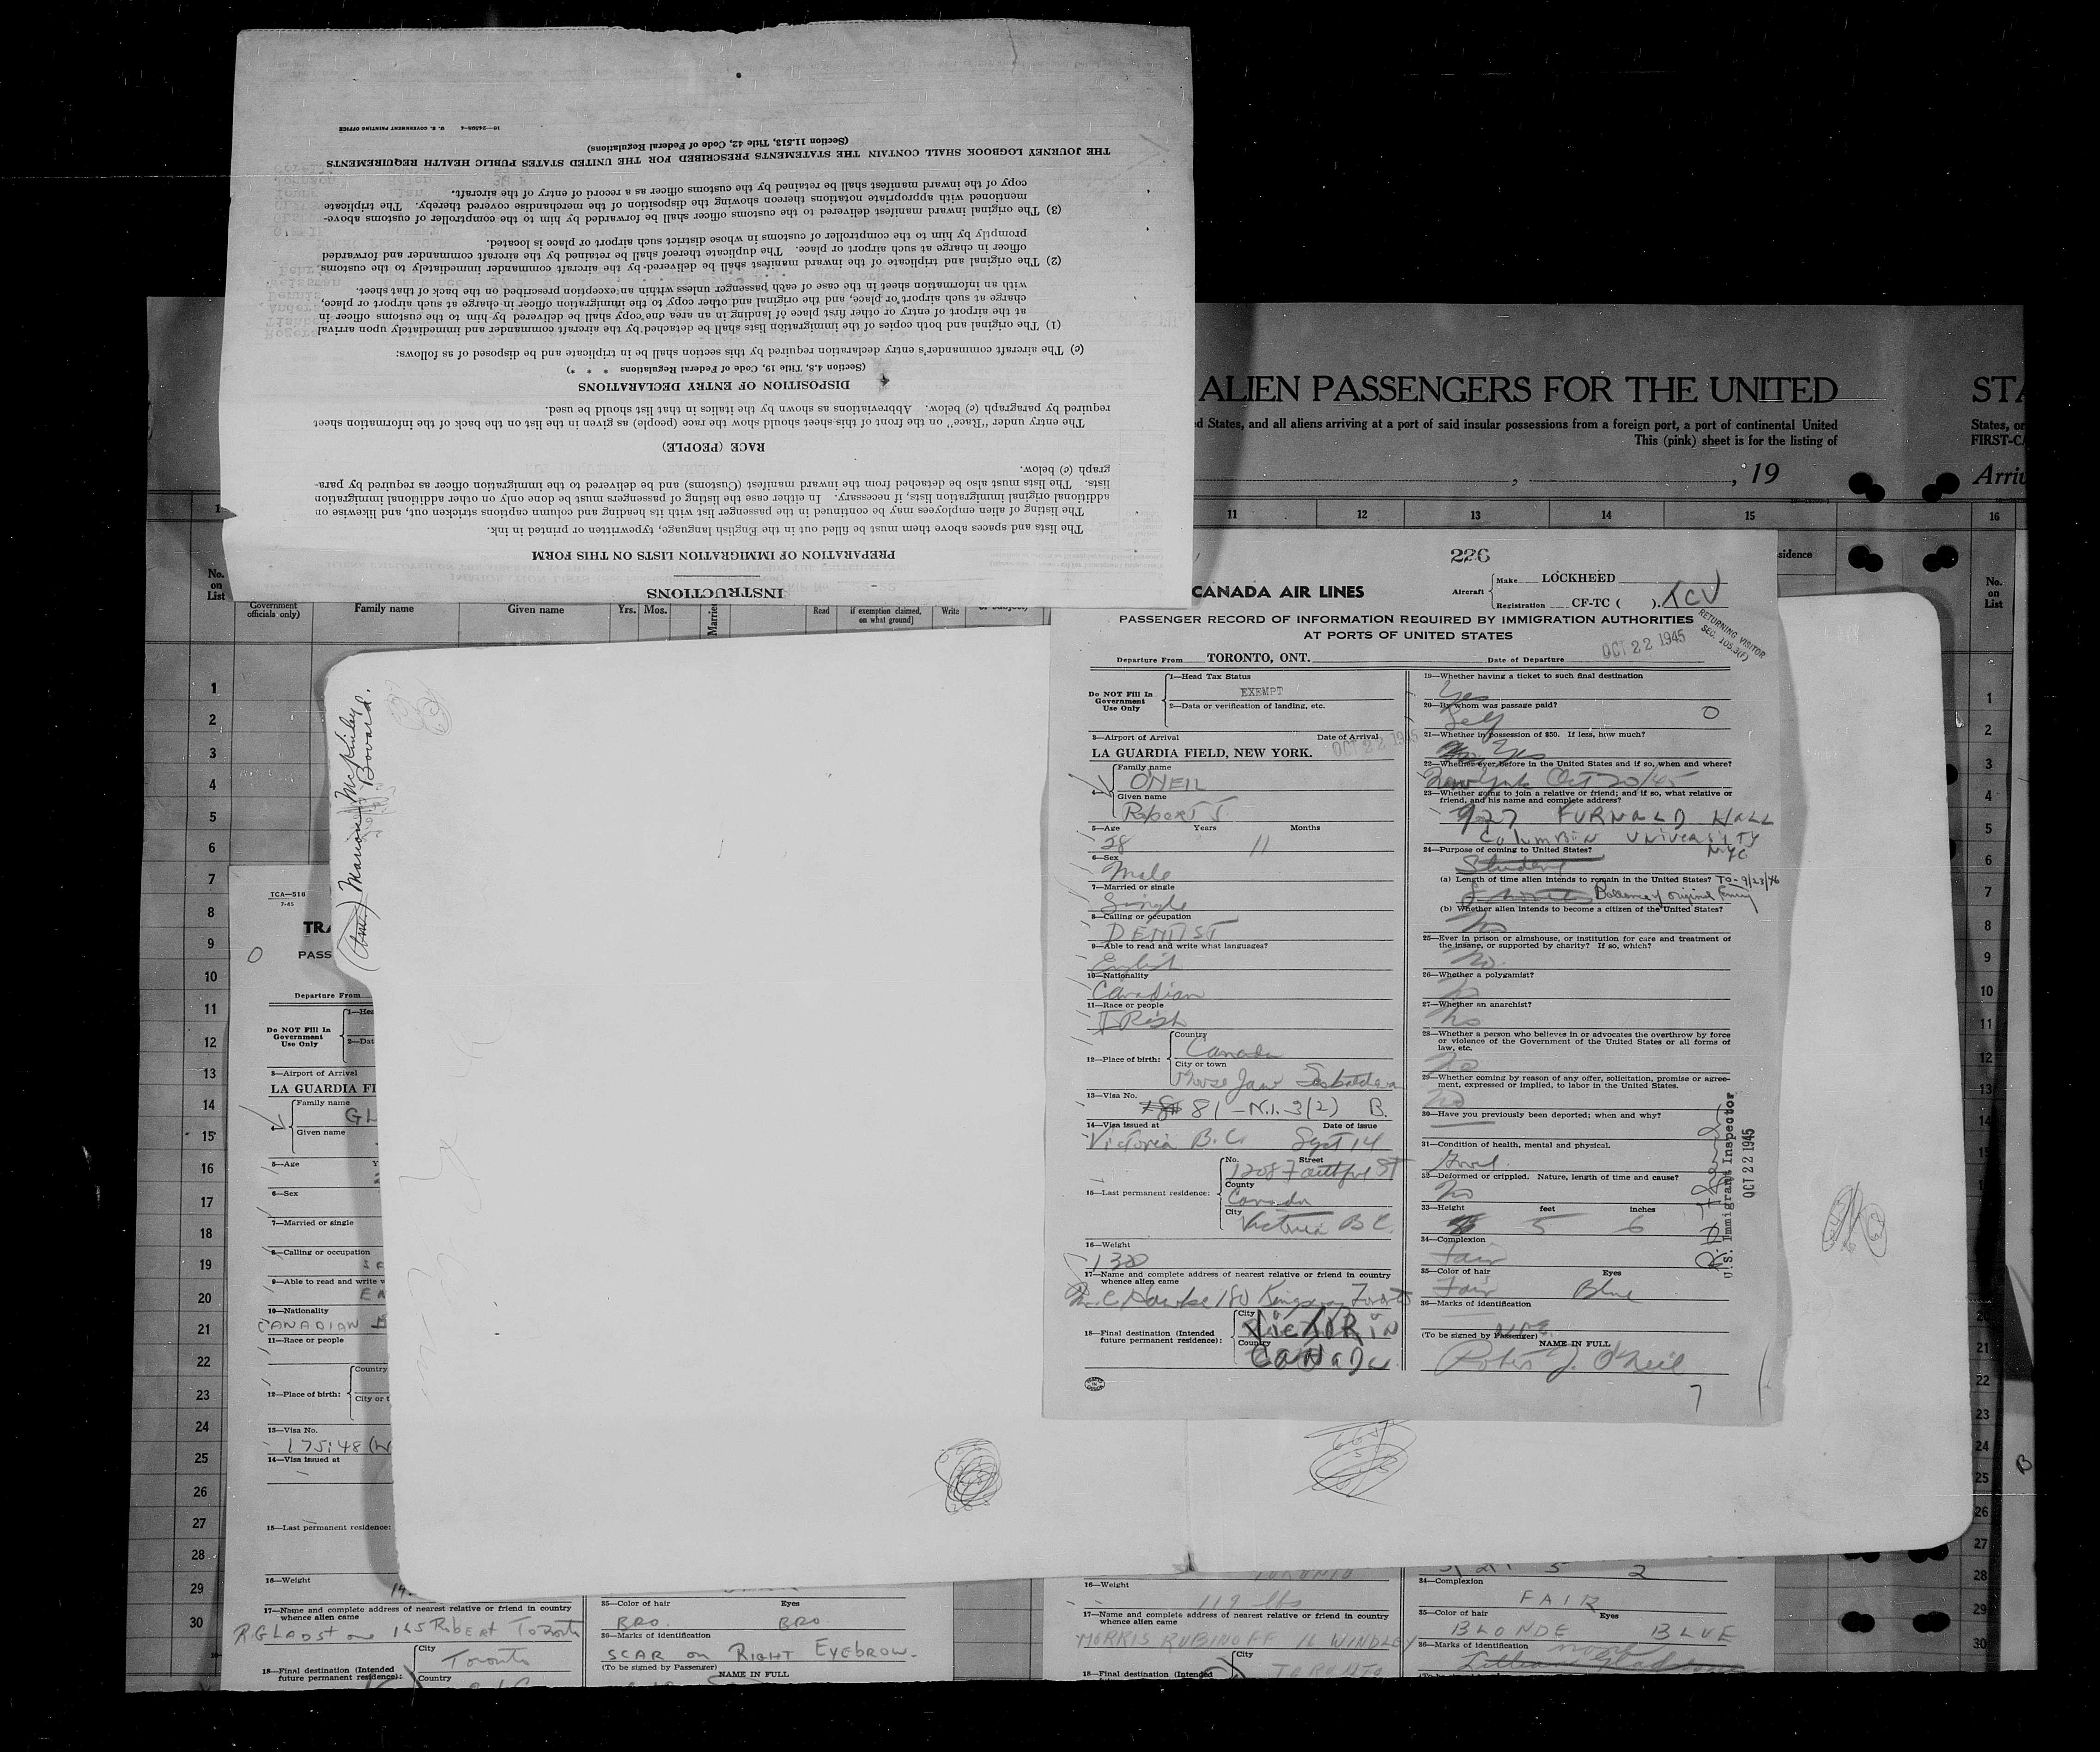 INSTRUCTIONS
PREPARATION OF IMMIGRATION LISTS ON THIS FORM
The lists and spaces above them must be filled out in the English language, typewritten or printed in ink.
The listing of alien employees may be continued in the passenger list with its heading and column captions stricken out, and likewise on
additional original immigration lists, if necessary. In either case the listing of passengers must be done only on other additional immigration
lists. The lists must also be detached from the inward manifest (Customs) and be delivered to the immigration officer as required by para-
graph (c) below.
RACE (PEOPLE)
The entry under "Race" on the front of this sheet should show the race (people) as given in the list on the back of the information sheet
required by paragraph (c) below. Abbreviations as shown by the italics in that list should be used.
DISPOSITION OF ENTRY DECLARATIONS
(Section 4.8, Title 19, Code of Federal Regulations * * *)
(c) The aircraft commander's entry declaration required by this section shall be in triplicate and be disposed of as follows:
(1) The original and both copies of the immigration lists shall be detached by the aircraft commander and immediately upon arrival
at the airport of entry or other first place of landing in an area one copy shall be delivered by him to the customs officer in
charge at such airport or place, and the original and other copy to the immigration officer in charge at such airport or place,
with an information sheet in the case of each passenger unless within an exception prescribed on the back of that sheet.
(2) The original and triplicate of the inward manifest shall be delivered by the aircraft commander immediately to the customs
officer in charge at such airport or place. The duplicate thereof shall be retained by the aircraft commander and forwarded
promptly by him to the comptroller of customs in whose district such airport or place is located.
(3) The original inward manifest delivered to the customs officer shall be forwarded by him to the comptroller of customs above-
mentioned with appropriate notations thereon showing the disposition of the merchandise covered thereby. The triplicate
copy of the inward manifest shall be retained by the customs officer as a record of entry of the aircraft.
THE JOURNEY LOGBOOK SHALL CONTAIN THE STATEMENTS PRESCRIBED FOR THE UNITED STATES PUBLIC HEALTH REQUIREMENTS
(Section 11.513, Title 42, Code of Federal Regulations)
16—24598-4 U. S. GOVERNMENT PRINTING OFFICE
ALIEN PASSENGERS FOR THE UNITED
STA
d States, and all aliens arriving at a port of said insular possessions from a foreign port, a port of continental United
This (pink) sheet is for the listing of
States, or
FIRST-C
, , 19
Arriv
11 12 13 14 15 16
No. on List
Government officials only)
Family name
Given name
Yrs. Mos.
Married
Read
if exemption claimed, on what ground]
Write
sidence
No. on List
(Amer) Marion McKinley
Bovard.
226
CANADA AIR LINES
Aircraft
Make LOCKHEED
Registration CF-TC ( ). TCV
PASSENGER RECORD OF INFORMATION REQUIRED BY IMMIGRATION AUTHORITIES
AT PORTS OF UNITED STATES
RETURNING VISITOR
SEC. 105.3(F)
Departure From TORONTO, ONT.
Date of Departure OCT 22 1945
Do NOT Fill In Government Use Only
1—Head Tax Status
EXEMPT
2—Data or verification of landing, etc.
3—Airport of Arrival
Date of Arrival
LA GUARDIA FIELD, NEW YORK.
OCT 22 1945
4—
Family name
ONEIL
Given name
Robert J.
5—Age Years Months
28 11
6—Sex
Male
7—Married or single
Single
8—Calling or occupation
DENTIST
9—Able to read and write what languages?
English
10—Nationality
Canadian
11—Race or people
IRish
12—Place of birth:
Country
Canada
City or town
Moose Jaw
13—Visa No.
81 - N.I. 3(2) B.
14—Visa issued at Date of issue
Victoria B.C. Sept 14
15—Last permanent residence:
No. Street
1208 Faithful ST
County
Canada
City
Victoria B C.
16—Weight
130
17—Name and complete address of nearest relative or friend in country
whence alien came
C Hawke 180 Kingsway Toronto
18—Final destination (Intended
future permanent residence):
City
VicTORiA
Country
CaNaDa
19—Whether having a ticket to such final destination
Yes
20—By whom was passage paid?
Self
0
21—Whether in possession of $50. If less, how much?
Yes
22—Whether ever before in the United States and if so, when and where?
New York Oct 20/45
23—Whether going to join a relative or friend; and if so, what relative or
friend, and his name and complete address?
927 FURNALD HALL
Columbia UniveRsiTY
NYC
24—Purpose of coming to United States?
Student
(a) Length of time alien intends to remain in the United States? To - 9/23/46
Balance of original
(b) Whether alien intends to become a citizen of the United States?
No
25—Ever in prison or almshouse, or institution for care and treatment of
the insane, or supported by charity? If so, which?
No.
26—Whether a polygamist?
No
27—Whether an anarchist?
No
28—Whether a person who believes in or advocates the overthrow by force
or violence of the Government of the United States or all forms of
law, etc.
No
29—Whether coming by reason of any offer, solicitation, promise or agree-
ment, expressed or implied, to labor in the United States.
No
30—Have you previously been deported; when and why?
31—Condition of health, mental and physical.
Good.
32—Deformed or crippled. Nature, length of time and cause?
No
33—Height feet inches
5 6
34—Complexion
Fair
35—Color of hair Eyes
Fair Blue
36—Marks of identification
(To be signed by Passenger)
NAME IN FULL
Robert J. O'Neil
7
U.S. Immigrant Inspector
OCT 22 1945
TCA—518
7-45
TRA
PASS
0
Departure From
Do NOT Fill In Government Use Only
1—Hea
2—Dat
3—Airport of Arrival
LA GUARDIA FI
4—
Family name
GL
Given name
5—Age Y
6—Sex
7—Married or single
8—Calling or occupation
9—Able to read and write w
EN
10—Nationality
CANADIAN
11—Race or people
12—Place of birth:
Country
City or t
13—Visa No.
175:48
14—Visa issued at
15—Last permanent residence:
16—Weight
17—Name and complete address of nearest relative or friend in country
whence alien came
R.GLADSTone 165 RobeRt ToRonto
18—Final destination (Intended
future permanent residence):
City
Toronto
Country
35—Color of hair Eyes
BRO. BRO
36—Marks of identification
SCAR on RIGHT EYEBROW.
(To be signed by Passenger)
NAME IN FULL
TORONTO
16—Weight
119 lbs
17—Name and complete address of nearest relative or friend in country
whence alien came
MORRIS RUBINOFF 16 WINDLEY
18—Final destination (Intended
City
TORONTO
5 2
34—Complexion
FAIR
35—Color of hair Eyes
BLONDE BLUE
36—Marks of identification
none
B
1
2
3
4
5
6
7
8
9
10
11
12
13
14
15
16
17
18
19
20
21
22
23
24
25
26
27
28
29
30